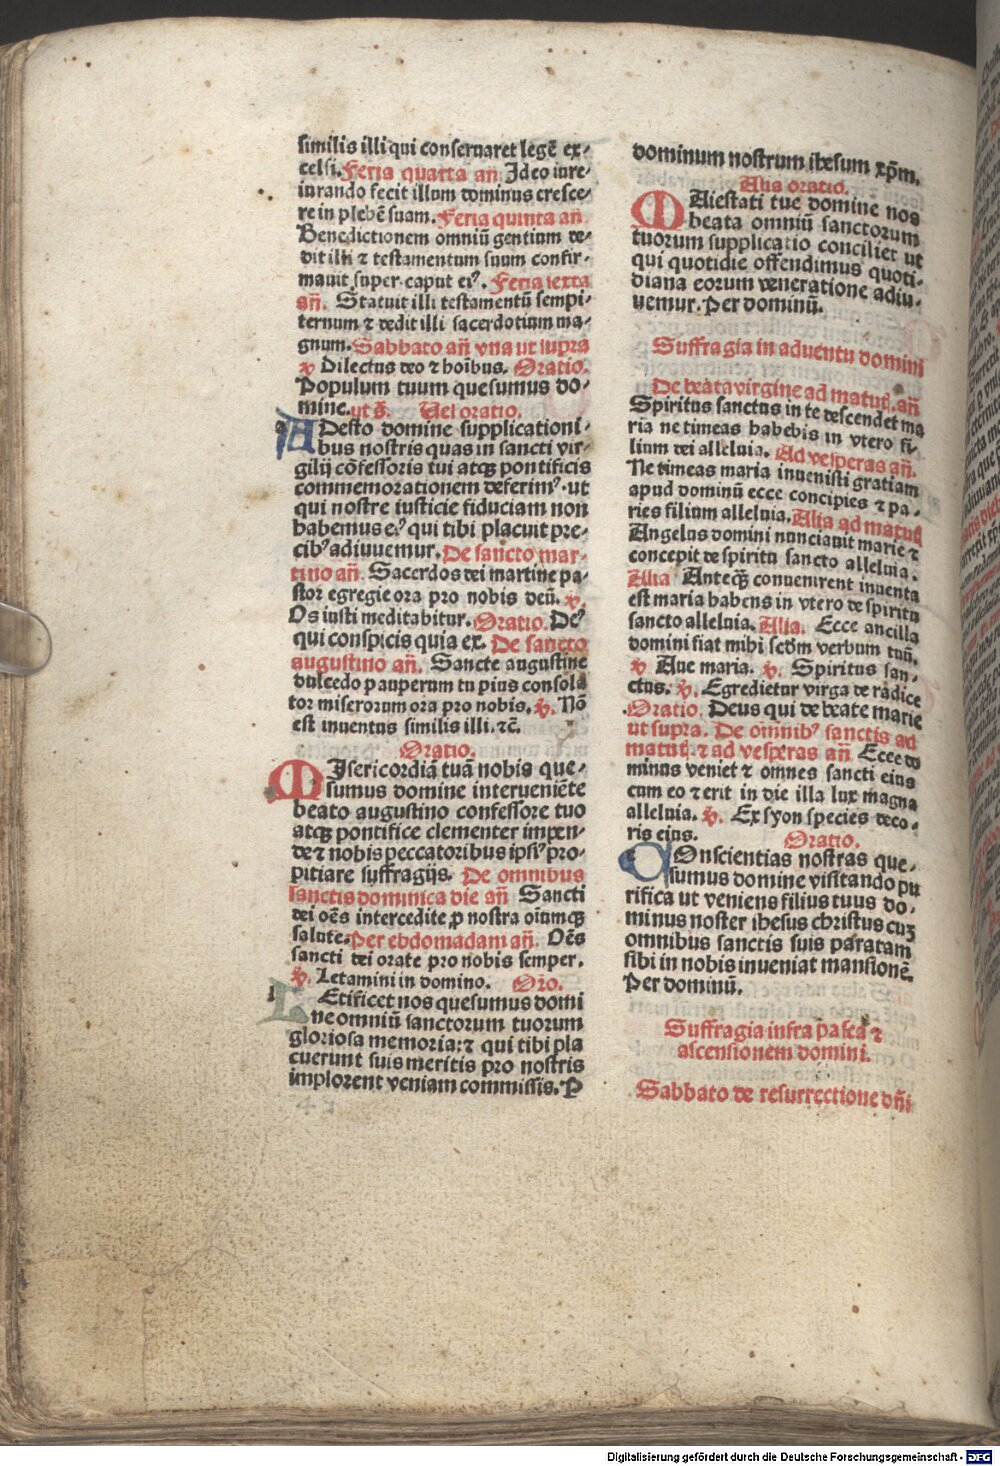 similis illi qui conseruaret legē ex-
celsi. Feria quarta añ Ideo iure-
iurando fecit illum dominus cresce-
re in plebē suam. Feria quinta añ.
Benedictionem omniū gentium de-
dit illi ⁊ testamentum suum confir-
mauit super caput eiꝰ. Feria sexta
añ. Statuit illi testamentū sempi-
ternum ⁊ dedit illi sacerdotium ma-
gnum. Sabbato añ vna ut supra
℣ Dilectus deo ⁊ hoībus. Oratio.
Populum tuum quesumus do-
mine. ut s̄. Uel oratio.
ADesto domine supplicationi-
bus nostris quas in sancti vir-
gilij cōfessoris tui atqꝫ pontificis
commemorationem deferimꝰ. ut
qui nostre iusticie fiduciam non
habemus eiꝰ qui tibi placuit pre-
cibꝰ adiuuemur. De sancto mar-
tino añ. Sacerdos dei martine pa-
stor egregie ora pro nobis deū. ℣.
Os iusti meditabitur. Oratio. Deꝰ
qui conspicis quia ex. De sancto
augustino añ. Sancte augustine
dulcedo pauperum tu pius consola
tor miserorum ora pro nobis. ℣. Nō
est inuentus similis illi. ⁊c̄.
Oratio.
MIsericordiā tuā nobis que-
sumus domine interueniēte
beato augustino confessore tuo
atqꝫ pontifice clementer impen-
de ⁊ nobis peccatoribus ipsiꝰ pro-
pitiare suffragijs. De omnibus
sanctis dominica die añ Sancti
dei oēs intercedite ꝓ nostra oīumqꝫ
salute. Per ebdomadam añ. Oēs
sancti dei orate pro nobis semper.
℣. Letamini in domino. Oro.
LEtificet nos quesumus domi
ne omniū sanctorum tuorum
gloriosa memoria: ⁊ qui tibi pla
cuerunt suis meritis pro nostris
implorent veniam commissis. P
dominum nostrum ihesum xp̄m.
Alia oratio.
MAiestati tue domine nos
beata omniū sanctorum
tuorum supplicatio conciliet ut
qui quotidie offendimus quoti-
diana eorum veneratione adiu-
uemur. Per dominū.
Suffragia in aduentu domini
De beata virgine ad matut̄. añ
Spiritus sanctus in te descendet ma
ria ne timeas habebis in vtero fi-
lium dei alleluia. Ad vesperas añ.
Ne timeas maria inuenisti gratiam
apud dominū ecce concipies ⁊ pa-
ries filium alleluia. Alia ad matut̄
Angelus domini nunciauit marie ⁊
concepit de spiritu sancto alleluia.
Alia Anteqꝫ conuenirent inuenta
est maria habens in vtero de spiritu
sancto alleluia. Alia. Ecce ancilla
domini fiat mihi scd̄m verbum tuū.
℣ Aue maria. ℣. Spiritus san-
ctus. ℣. Egredietur virga de radice
Oratio. Deus qui de beate marie
ut supra. De om̄nibꝰ sanctis ad
matut̄. ⁊ ad vesperas añ Ecce do
minus veniet ⁊ omnes sancti eius
cum eo ⁊ erit in die illa lux magna
alleluia. ℣. Ex syon species deco-
ris eius. Oratio.
COnscientias nostras que-
sumus domine visitando pu
rifica ut veniens filius tuus do-
minus noster ihesus christus cuꝫ
omnibus sanctis suis paratam
sibi in nobis inueniat mansionē.
Per dominū.
Suffragia infra pasca ⁊
ascensionem domini.
Sabbato de resurrectione dn̄i
Digitalisierung gefördert durch die Deutsche Forschungsgemeinschaft - DFG